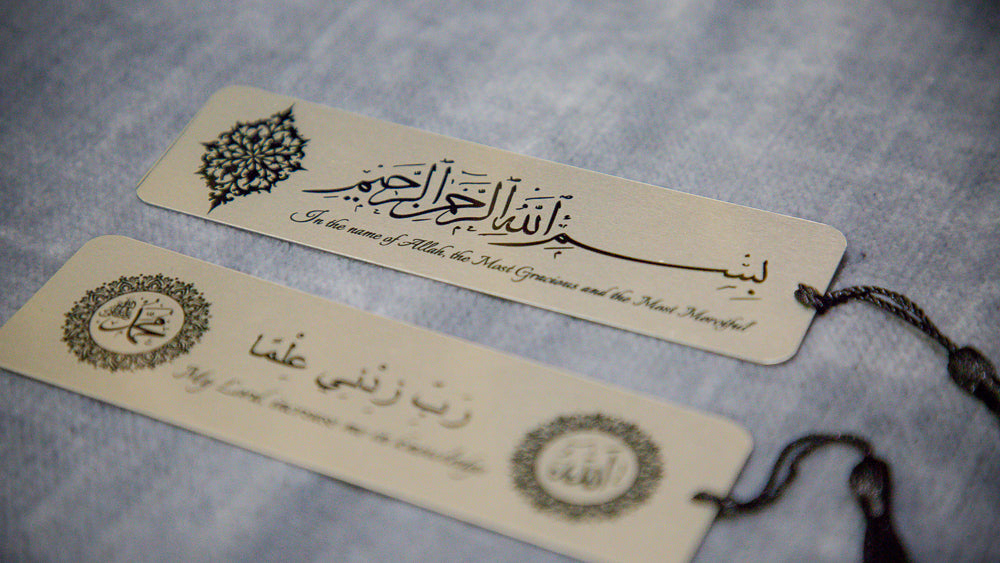 بِسْمِ اللَّهِ الرَّحْمَنِ الرَّحِيمِ
In the name of Allah, the Most Gracious and the Most Merciful
محمد
رَبِّ زِدْنِي عِلْمًا
My Lord increase me in knowledge
الله